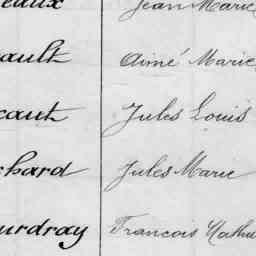 eaux Jean Marie
ault Aimé Marie
caut Jules Louis
chard Jules Marie
urdray Francois Mathu